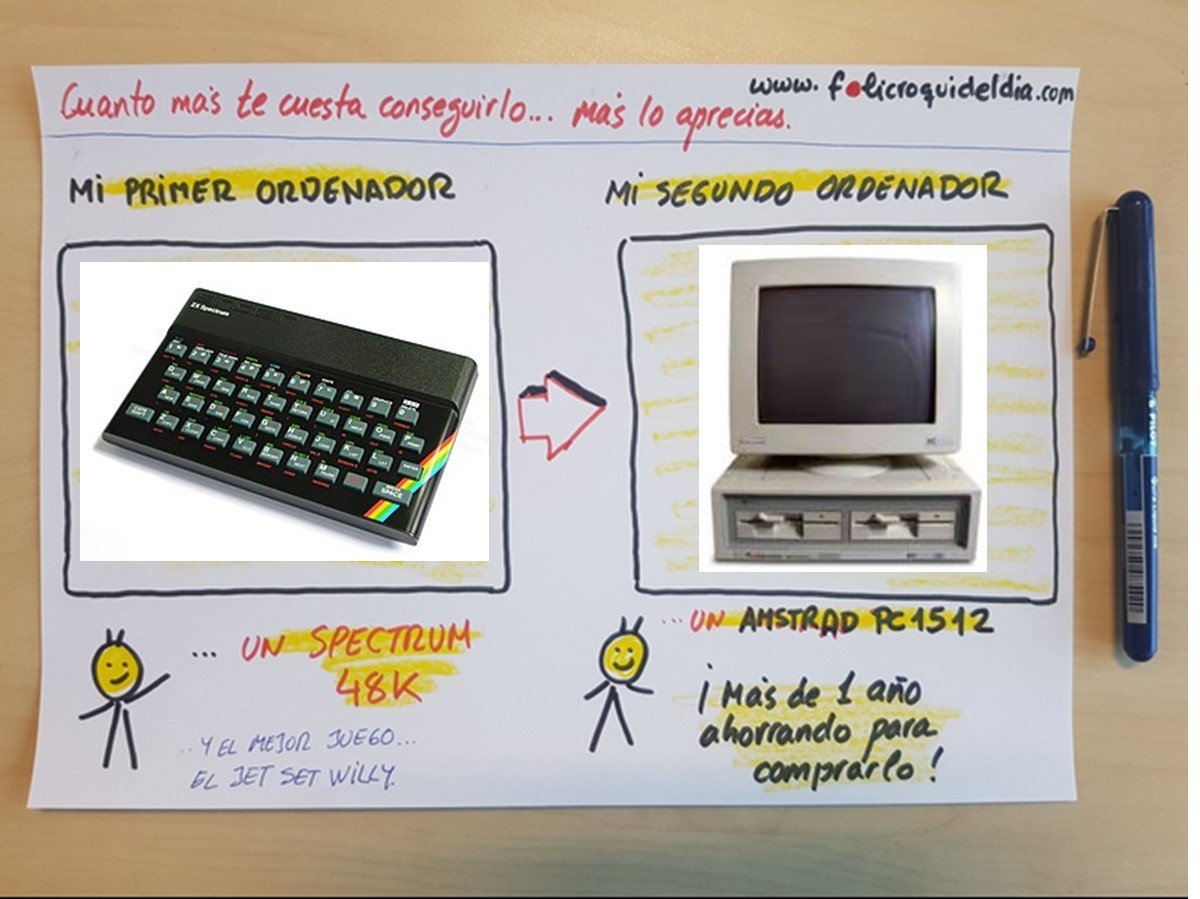 Cuanto más te cuesta conseguirlo... más lo aprecias.
www.folicroquideldia.com
Mi PRIMER ORDENADOR
Mi SEGUNDO ORDENADOR
ZX Spectrum
... UN SPECTRUM
48K
.. Y EL MEJOR JUEGO...
EL JET SET WILLY.
... UN AMSTRAD PC1512
¡Más de 1 año
ahorrando para
comprarlo!
PILOT